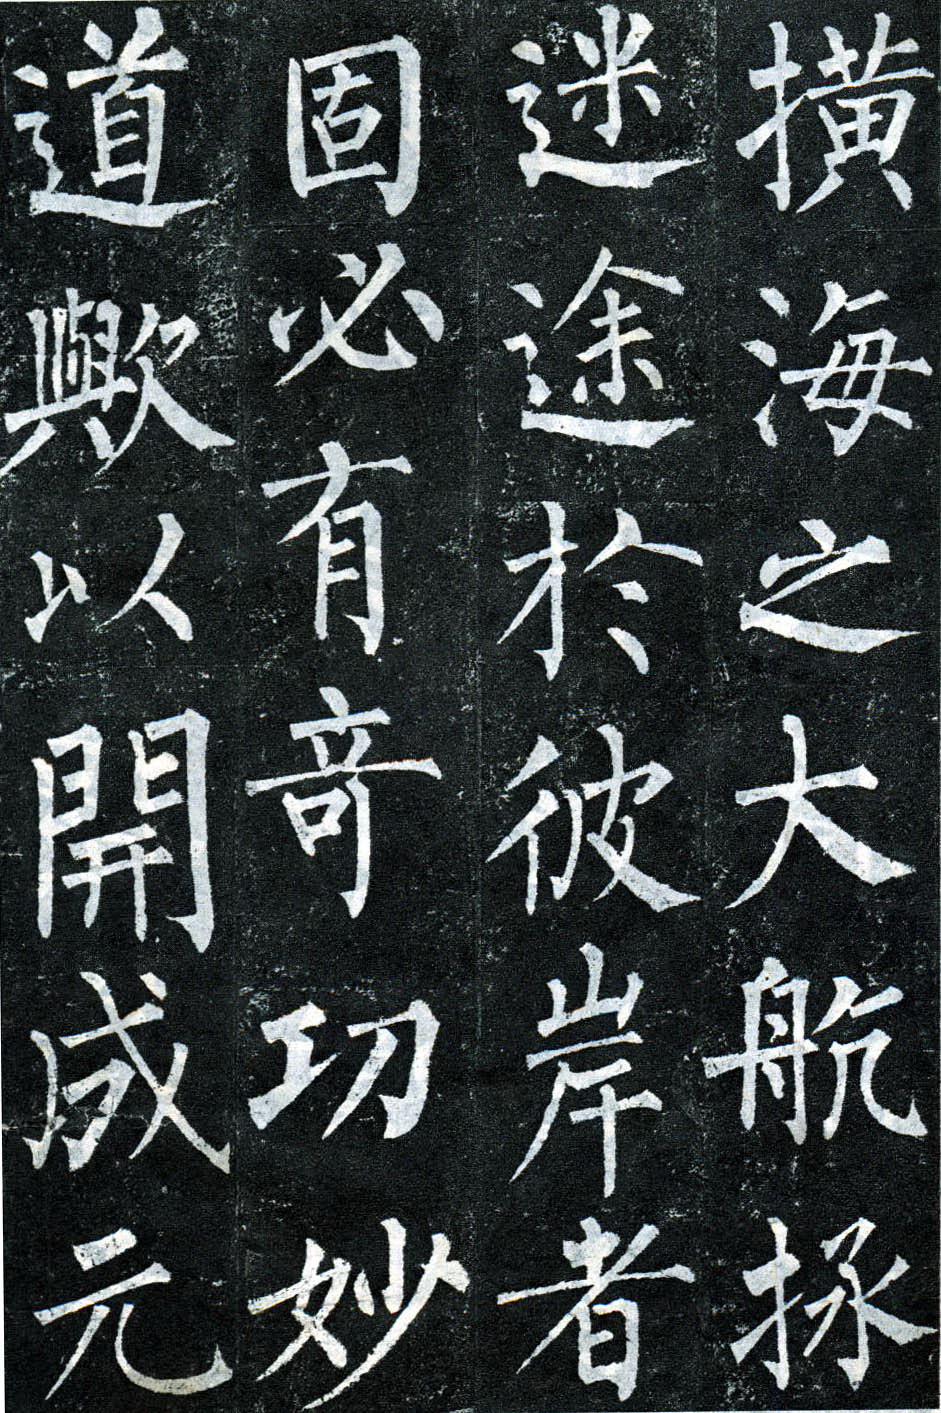 撗海之大航拯
迷途於彼岸者
固必有奇功妙
道歟以開成元